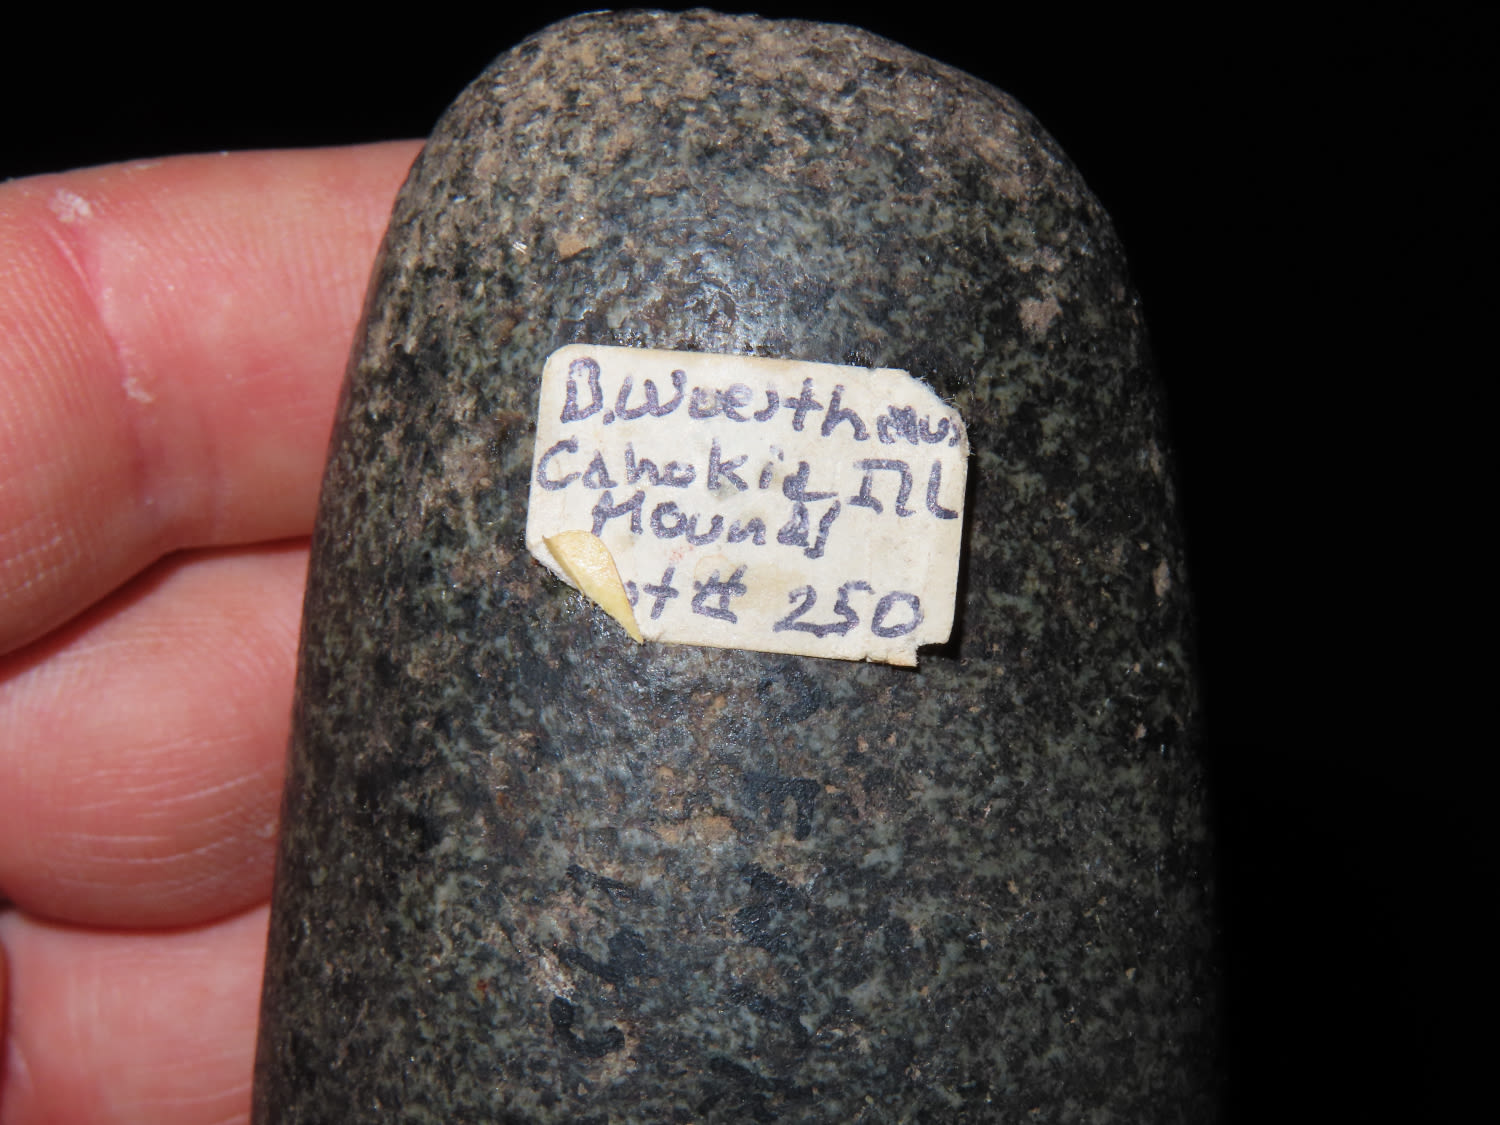 B. Woesth Mus
Cahokia Ill
Mounds
# 250